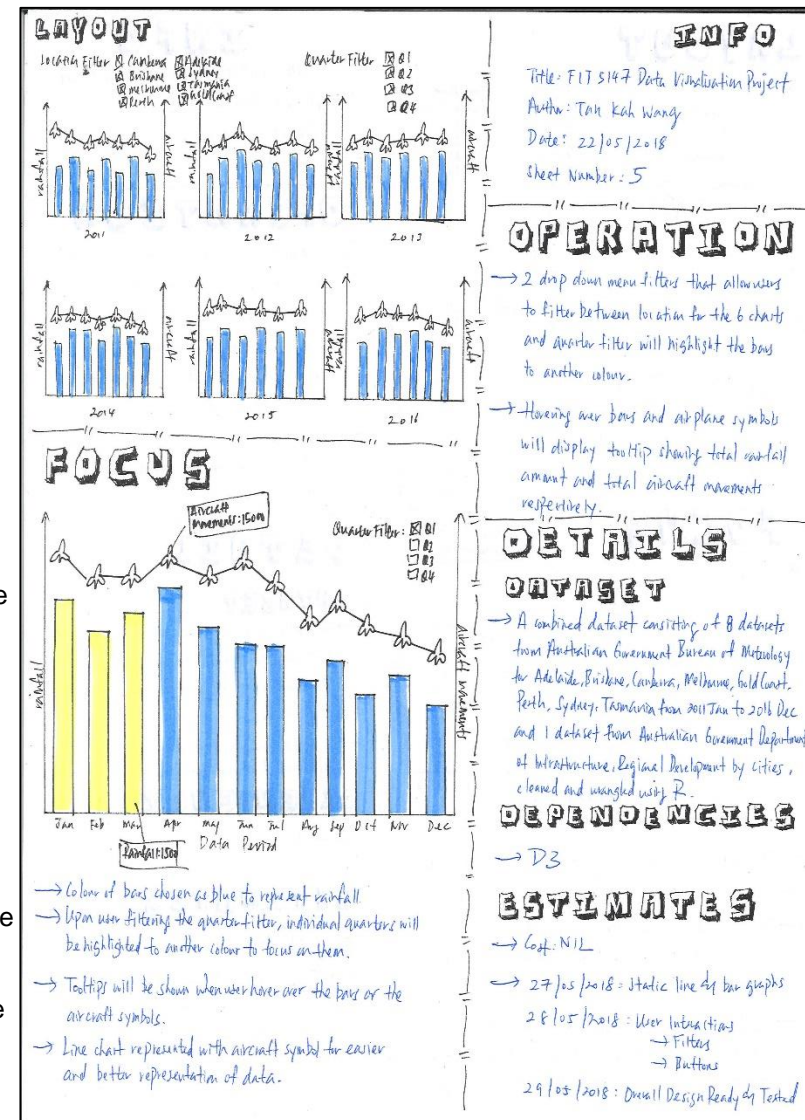 LAYOUT
Location Filter ☒ Canberra ☒ Adelaide
☒ Brisbane ☒ Sydney
☒ Melbourne ☒ Tasmania
☒ Perth ☒ Gold Coast
Quarter Filter ☒ Q1
☒ Q2
☒ Q3
☒ Q4
rainfall
aircraft
rainfall
aircraft
rainfall
aircraft
2011
2012
2013
rainfall
aircraft
rainfall
aircraft
rainfall
aircraft
2014
2015
2016
FOCUS
Aircraft
Movements: 1500
Quarter Filter: ☒ Q1
☐ Q2
☐ Q3
☐ Q4
rainfall
Aircraft movements
Jan Feb Mar Apr May Jun Jul Aug Sep Oct Nov Dec
Data Period
Rainfall: 1500
→ Colour of bars chosen as blue to represent rainfall.
→ Upon user filtering the quarter filter, individual quarters will
be highlighted to another colour to focus on them.
→ Tooltips will be shown when user hover over the bars or the
aircraft symbols.
→ Line chart represented with aircraft symbol for easier
and better representation of data.
INFO
Title: FIT 5147 Data Visualisation Project
Author: Tan Kah Wang
Date: 22/05/2018
Sheet Number: 5
OPERATION
→ 2 drop down menu filters that allow users
to filter between location for the 6 charts
and quarter filter will highlight the bars
to another colour.
→ Hovering over bars and airplane symbols
will display tooltip showing total rainfall
amount and total aircraft movements
respectively.
DETAILS
DATASET
→ A combined dataset consisting of 8 datasets
from Australian Government Bureau of Meteology
for Adelaide, Brisbane, Canberra, Melbourne, Gold Coast,
Perth, Sydney, Tasmania from 2011 Jan to 2016 Dec
and 1 dataset from Australian Government Department
of Infrastructure, Regional Development by cities,
cleaned and wrangled using R.
DEPENDENCIES
→ D3
ESTIMATES
→ Cost: NIL
→ 27/05/2018: Static line & bar graphs
28/05/2018: User Interactions
→ Filters
→ Buttons
29/05/2018: Overall Design Ready & Tested
e
e
e